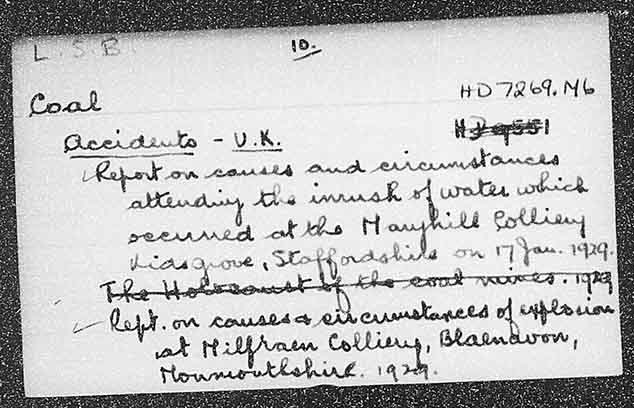 L.S.B. 10.
Coal HD 7269.M6
Accidents - U.K. HD9551
Report on causes and circumstances
attending the inrush of water which
occurred at the Maryhill Colliery
Kidsgrove, Staffordshire on 17 Jan. 1929.
The Holocaust of the coal mines. 1923
Rept. on causes & circumstances of explosion
at Milfraen Colliery, Blaenavon,
Monmouthshire. 1929.